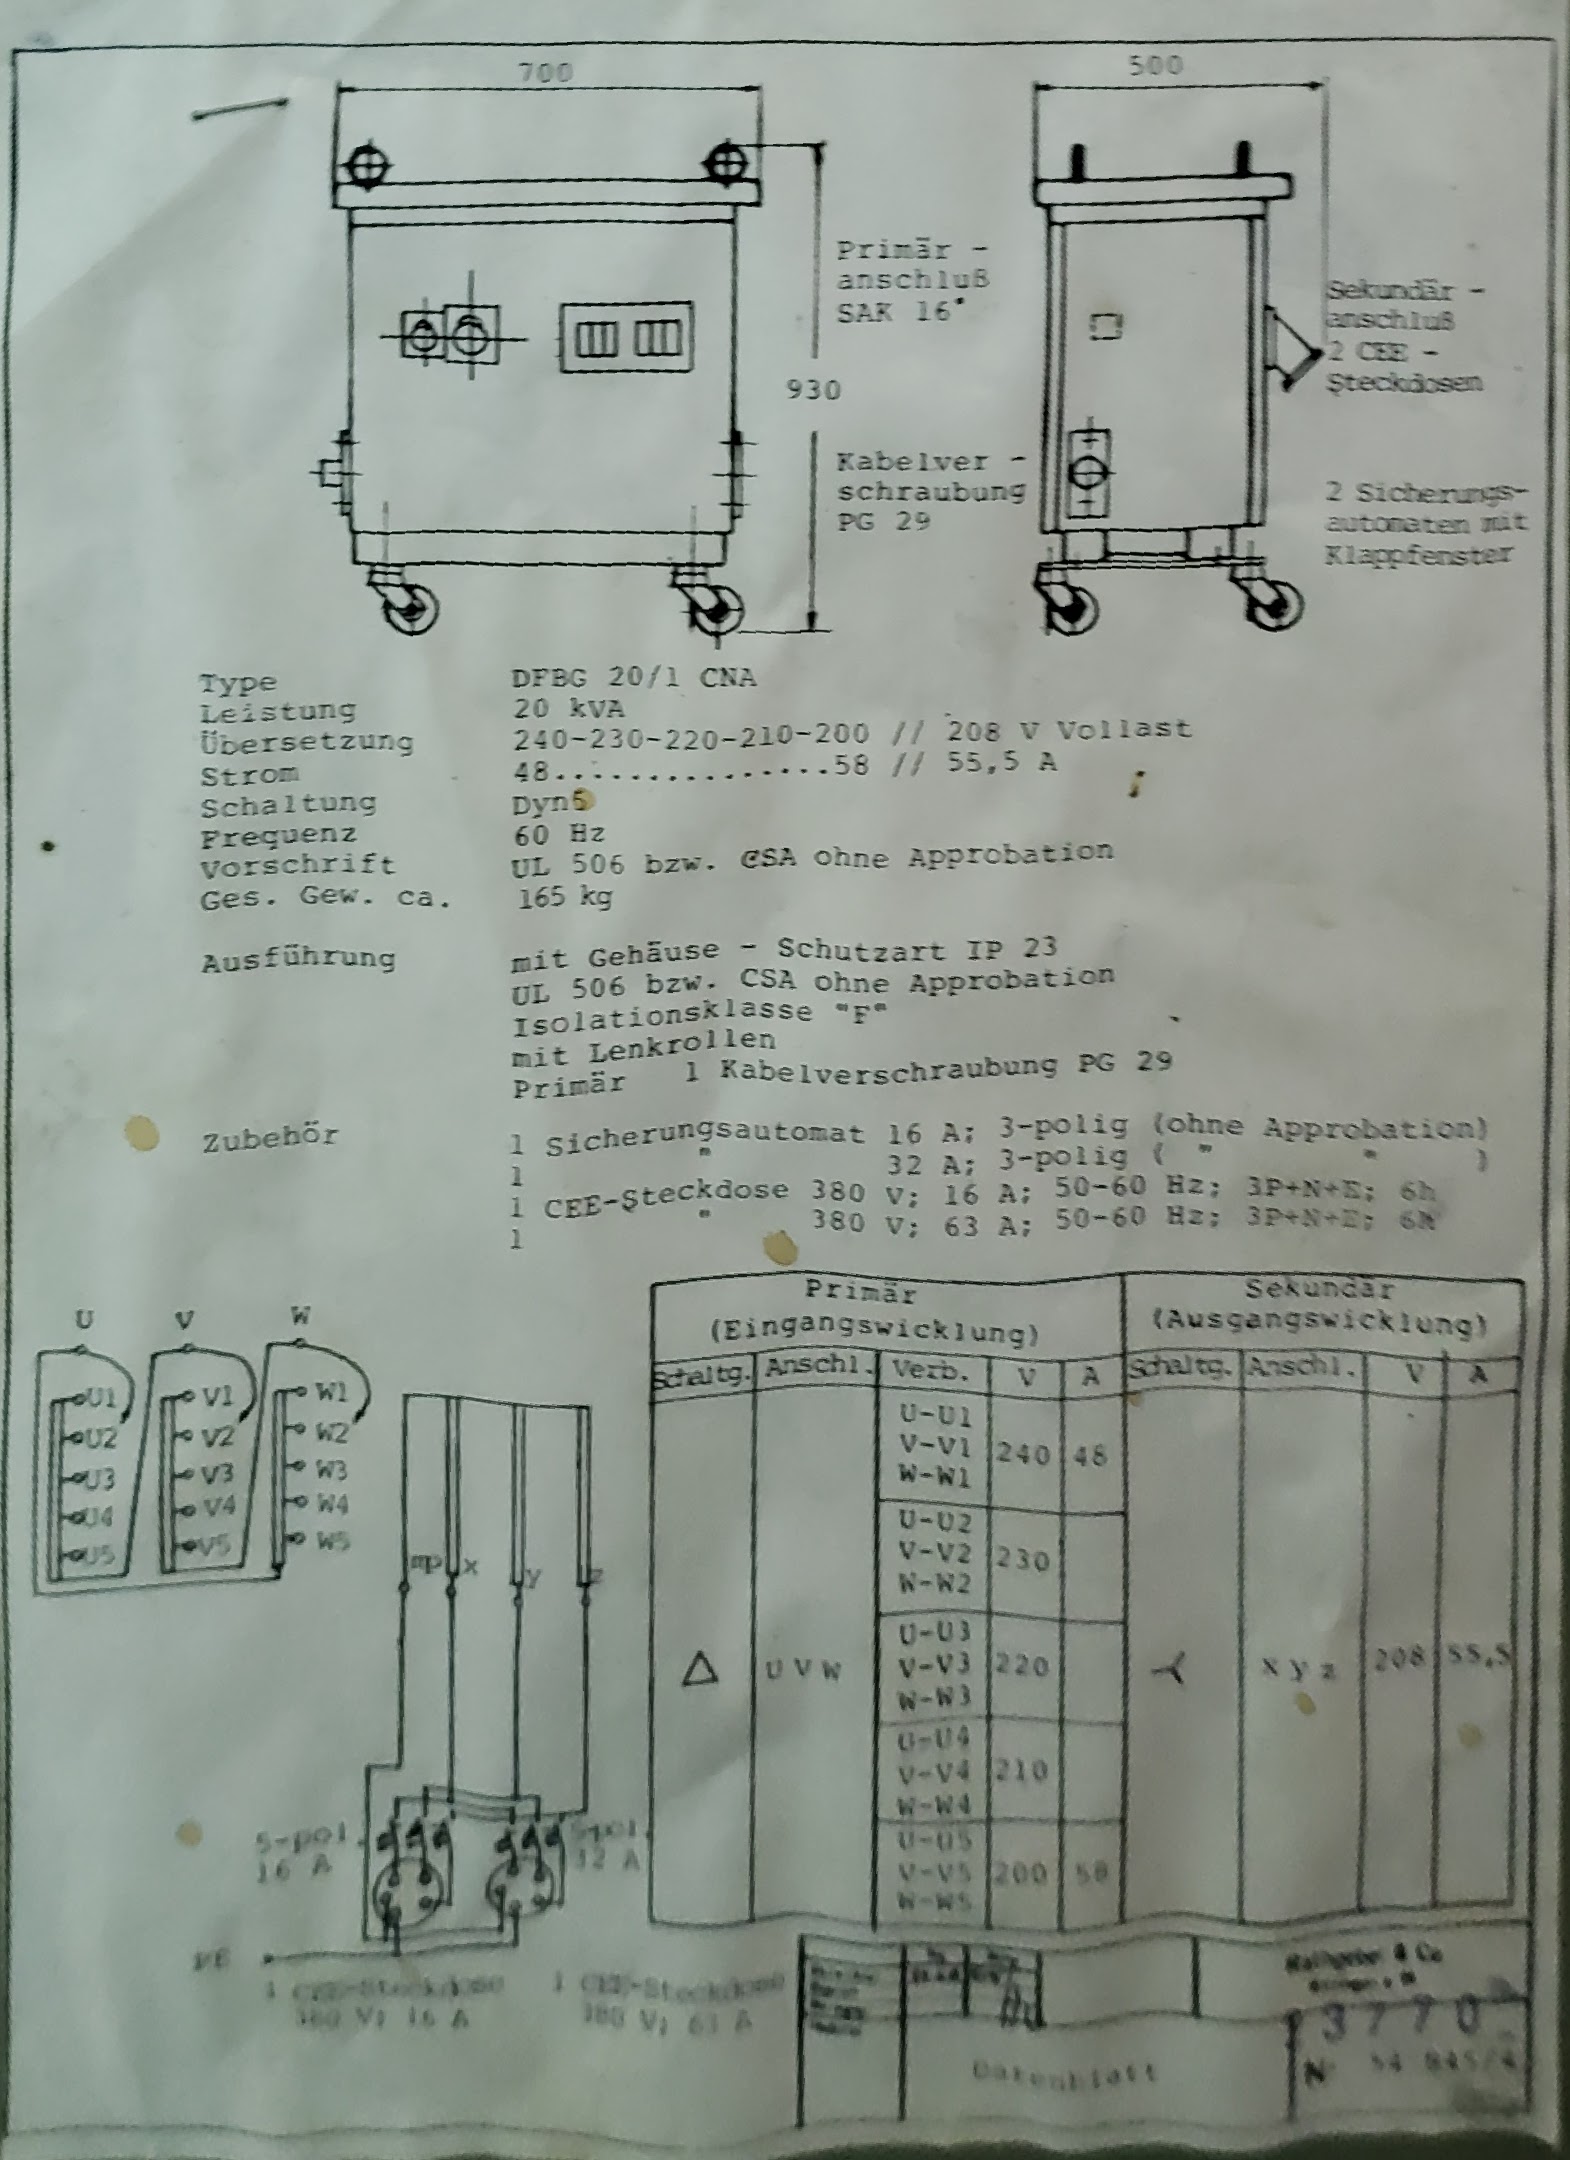 700
500
Primär -
anschluß
SAK 16"
Sekundär -
anschluß
2 CEE -
Steckdosen
930
Kabelver -
schraubung
PG 29
2 Sicherungs-
automaten mit
Klappfenster
Type DFBG 20/1 CNA
Leistung 20 kVA
Übersetzung 240-230-220-210-200 // 208 V Vollast
Strom 48...............58 // 55,5 A
Schaltung Dyn5
Frequenz 60 Hz
Vorschrift UL 506 bzw. CSA ohne Approbation
Ges. Gew. ca. 165 kg
Ausführung mit Gehäuse - Schutzart IP 23
UL 506 bzw. CSA ohne Approbation
Isolationsklasse "F"
mit Lenkrollen
Primär 1 Kabelverschraubung PG 29
Zubehör 1 Sicherungsautomat 16 A; 3-polig (ohne Approbation)
1 " 32 A; 3-polig ( " " )
1 CEE-Steckdose 380 V; 16 A; 50-60 Hz; 3P+N+E; 6h
1 " 380 V; 63 A; 50-60 Hz; 3P+N+E; 6h
Primär Sekundär
(Eingangswicklung) (Ausgangswicklung)
Schaltg. Anschl. Verb. V A Schaltg. Anschl. V A
U-U1
V-V1 240 48
W-W1
U-U2
V-V2 230
W-W2
U-U3
△ U V W V-V3 220 x y z 208 55,5
W-W3
U-U4
V-V4 210
W-W4
U-U5
V-V5 200 58
W-W5
U V W
U1 V1 W1
U2 V2 W2
U3 V3 W3
U4 V4 W4
U5 V5 W5
mp x y z
5-pol 5-pol
16 A 32 A
PE
1 CEE-Steckdose 1 CEE-Steckdose
380 V; 16 A 380 V; 63 A
& Co
3770
Datenblatt
N 54 845/4